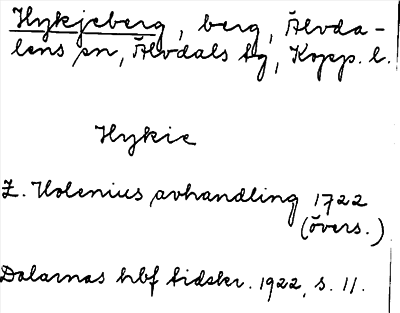 Hykjeberg, berg, Älvda-
lens sn, Älvdals tg, Kopp. l.
Hykie
Z. Holenius avhandling 1722
(övers.)
Dalarnas hbf tidskr. 1922, s. 11.